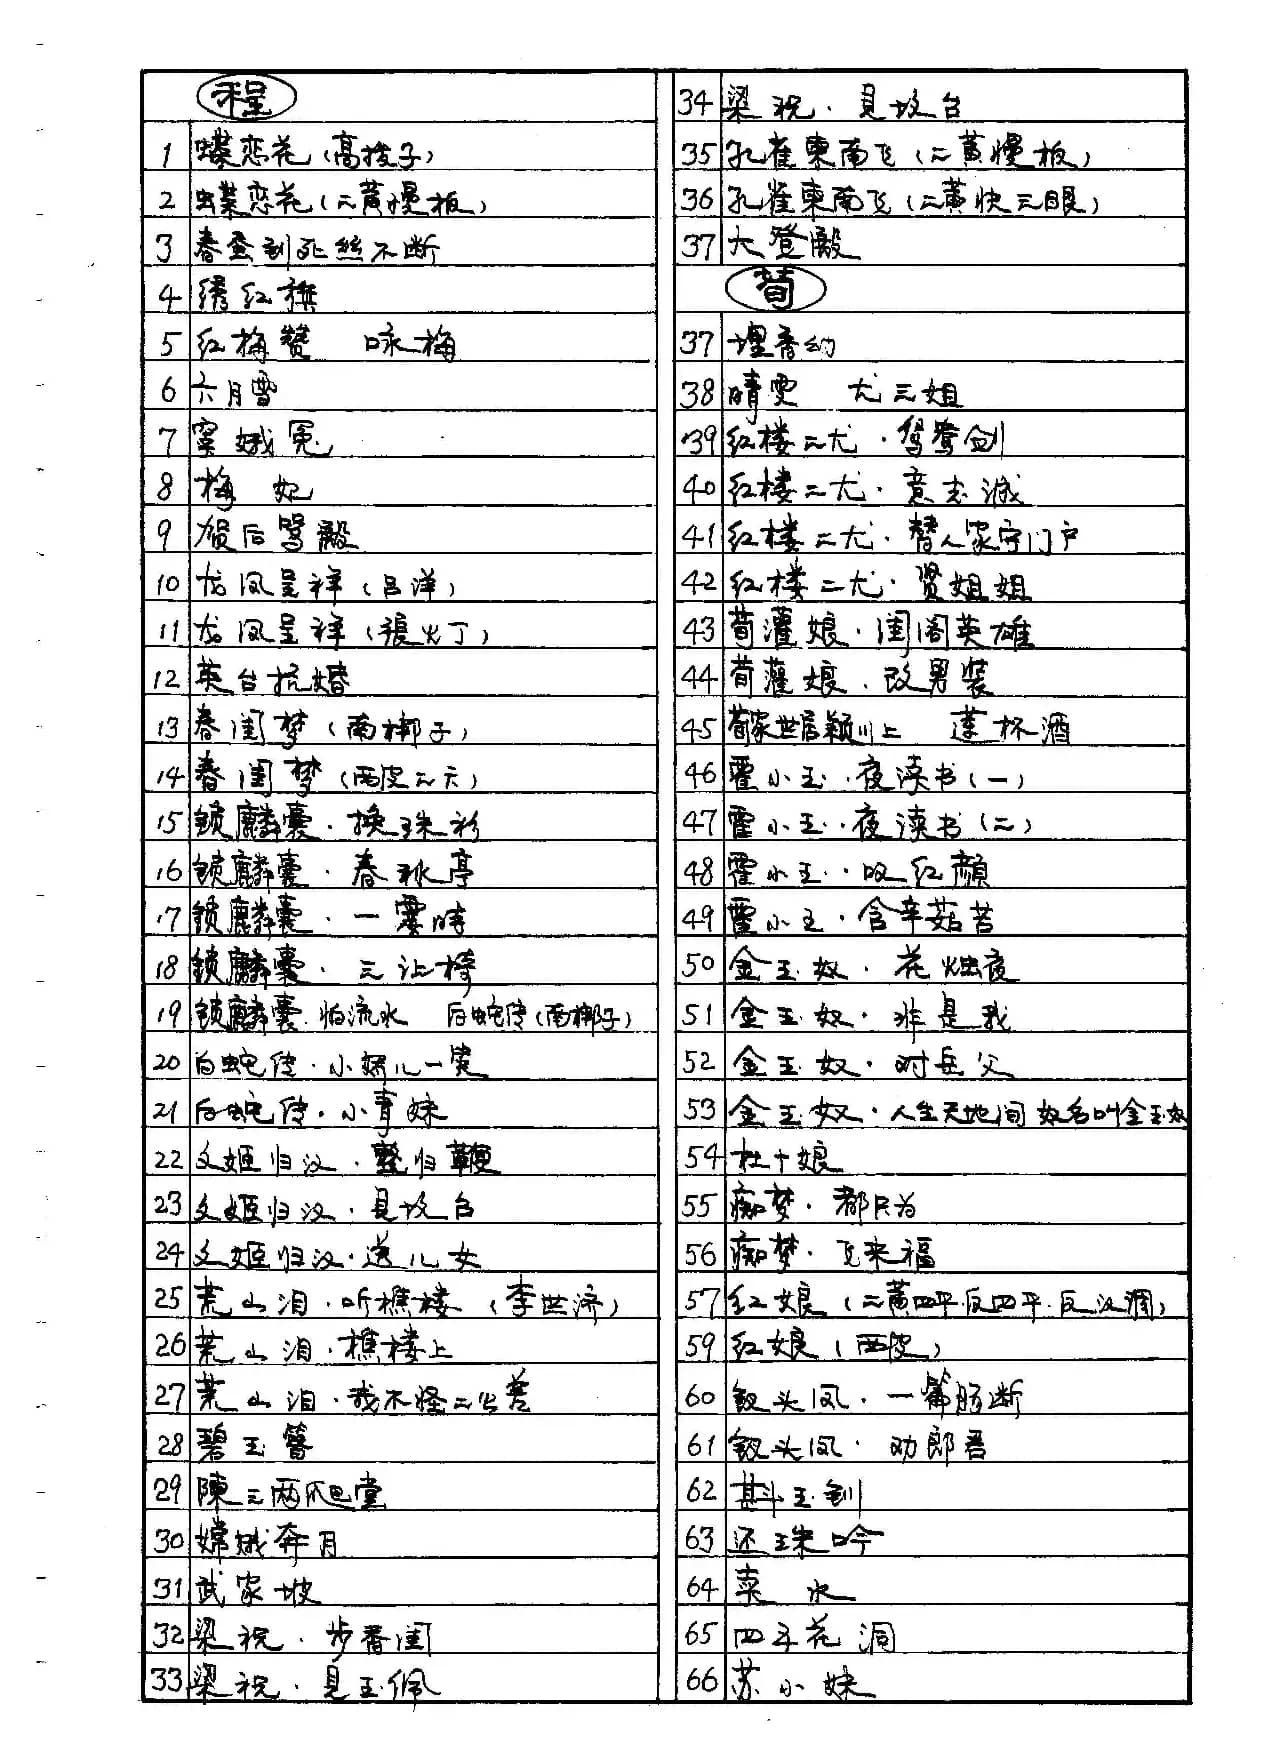 程
1 蝶恋花(高拨子)
2 蝶恋花(二黄慢板)
3 春蚕到死丝不断
4 绣红旗
5 红梅赞 咏梅
6 六月雪
7 窦娥冤
8 梅 妃
9 贺后骂殿
10 龙凤呈祥(吕洋)
11 龙凤呈祥(張火丁)
12 英台抗婚
13 春闺梦(南梆子)
14 春闺梦(西皮二六)
15 锁麟囊·换珠衫
16 锁麟囊·春秋亭
17 锁麟囊·一霎时
18 锁麟囊·三让椅
19 锁麟囊·怕流水 白蛇传(南梆子)
20 白蛇传·小娇儿一笑
21 白蛇传·小青妹
22 文姬归汉·整归鞭
23 文姬归汉·見坟台
24 文姬归汉·送儿女
25 荒山泪·听樵楼(李世济)
26 荒山泪·樵楼上
27 荒山泪·我不怪二公差
28 碧玉簪
29 陳三两爬堂
30 嫦娥奔月
31 武家坡
32 梁祝·步香闺
33 梁祝·見玉佩
34 梁祝·見坟台
35 孔雀東南飞(二黄慢板)
36 孔雀東南飞(二黄快三眼)
37 大登殿
荀
37 埋香幼
38 晴雯 尤三姐
39 红楼二尤·鸳鸯剑
40 红楼二尤·意志诚
41 红楼二尤·替人家守门户
42 红楼二尤·贤姐姐
43 荀灌娘·闺阁英雄
44 荀灌娘·改男装
45 荀家世居颖川上 蓬杯酒
46 霍小玉·夜读书(一)
47 霍小玉·夜读书(二)
48 霍小玉·叹红颜
49 霍小玉·含辛茹苦
50 金玉奴·花烛夜
51 金玉奴·非是我
52 金玉奴·对岳父
53 金玉奴·人生天地间 奴名叫金玉奴
54 杜十娘
55 痴梦·都只为
56 痴梦·飞来福
57 红娘(二黄四平·反四平·反汉调)
59 红娘(西皮)
60 钗头凤·一篇肠断
61 钗头凤·劝郎君
62 斟玉钏
63 还珠吟
64 卖 水
65 四平花洞
66 苏小妹